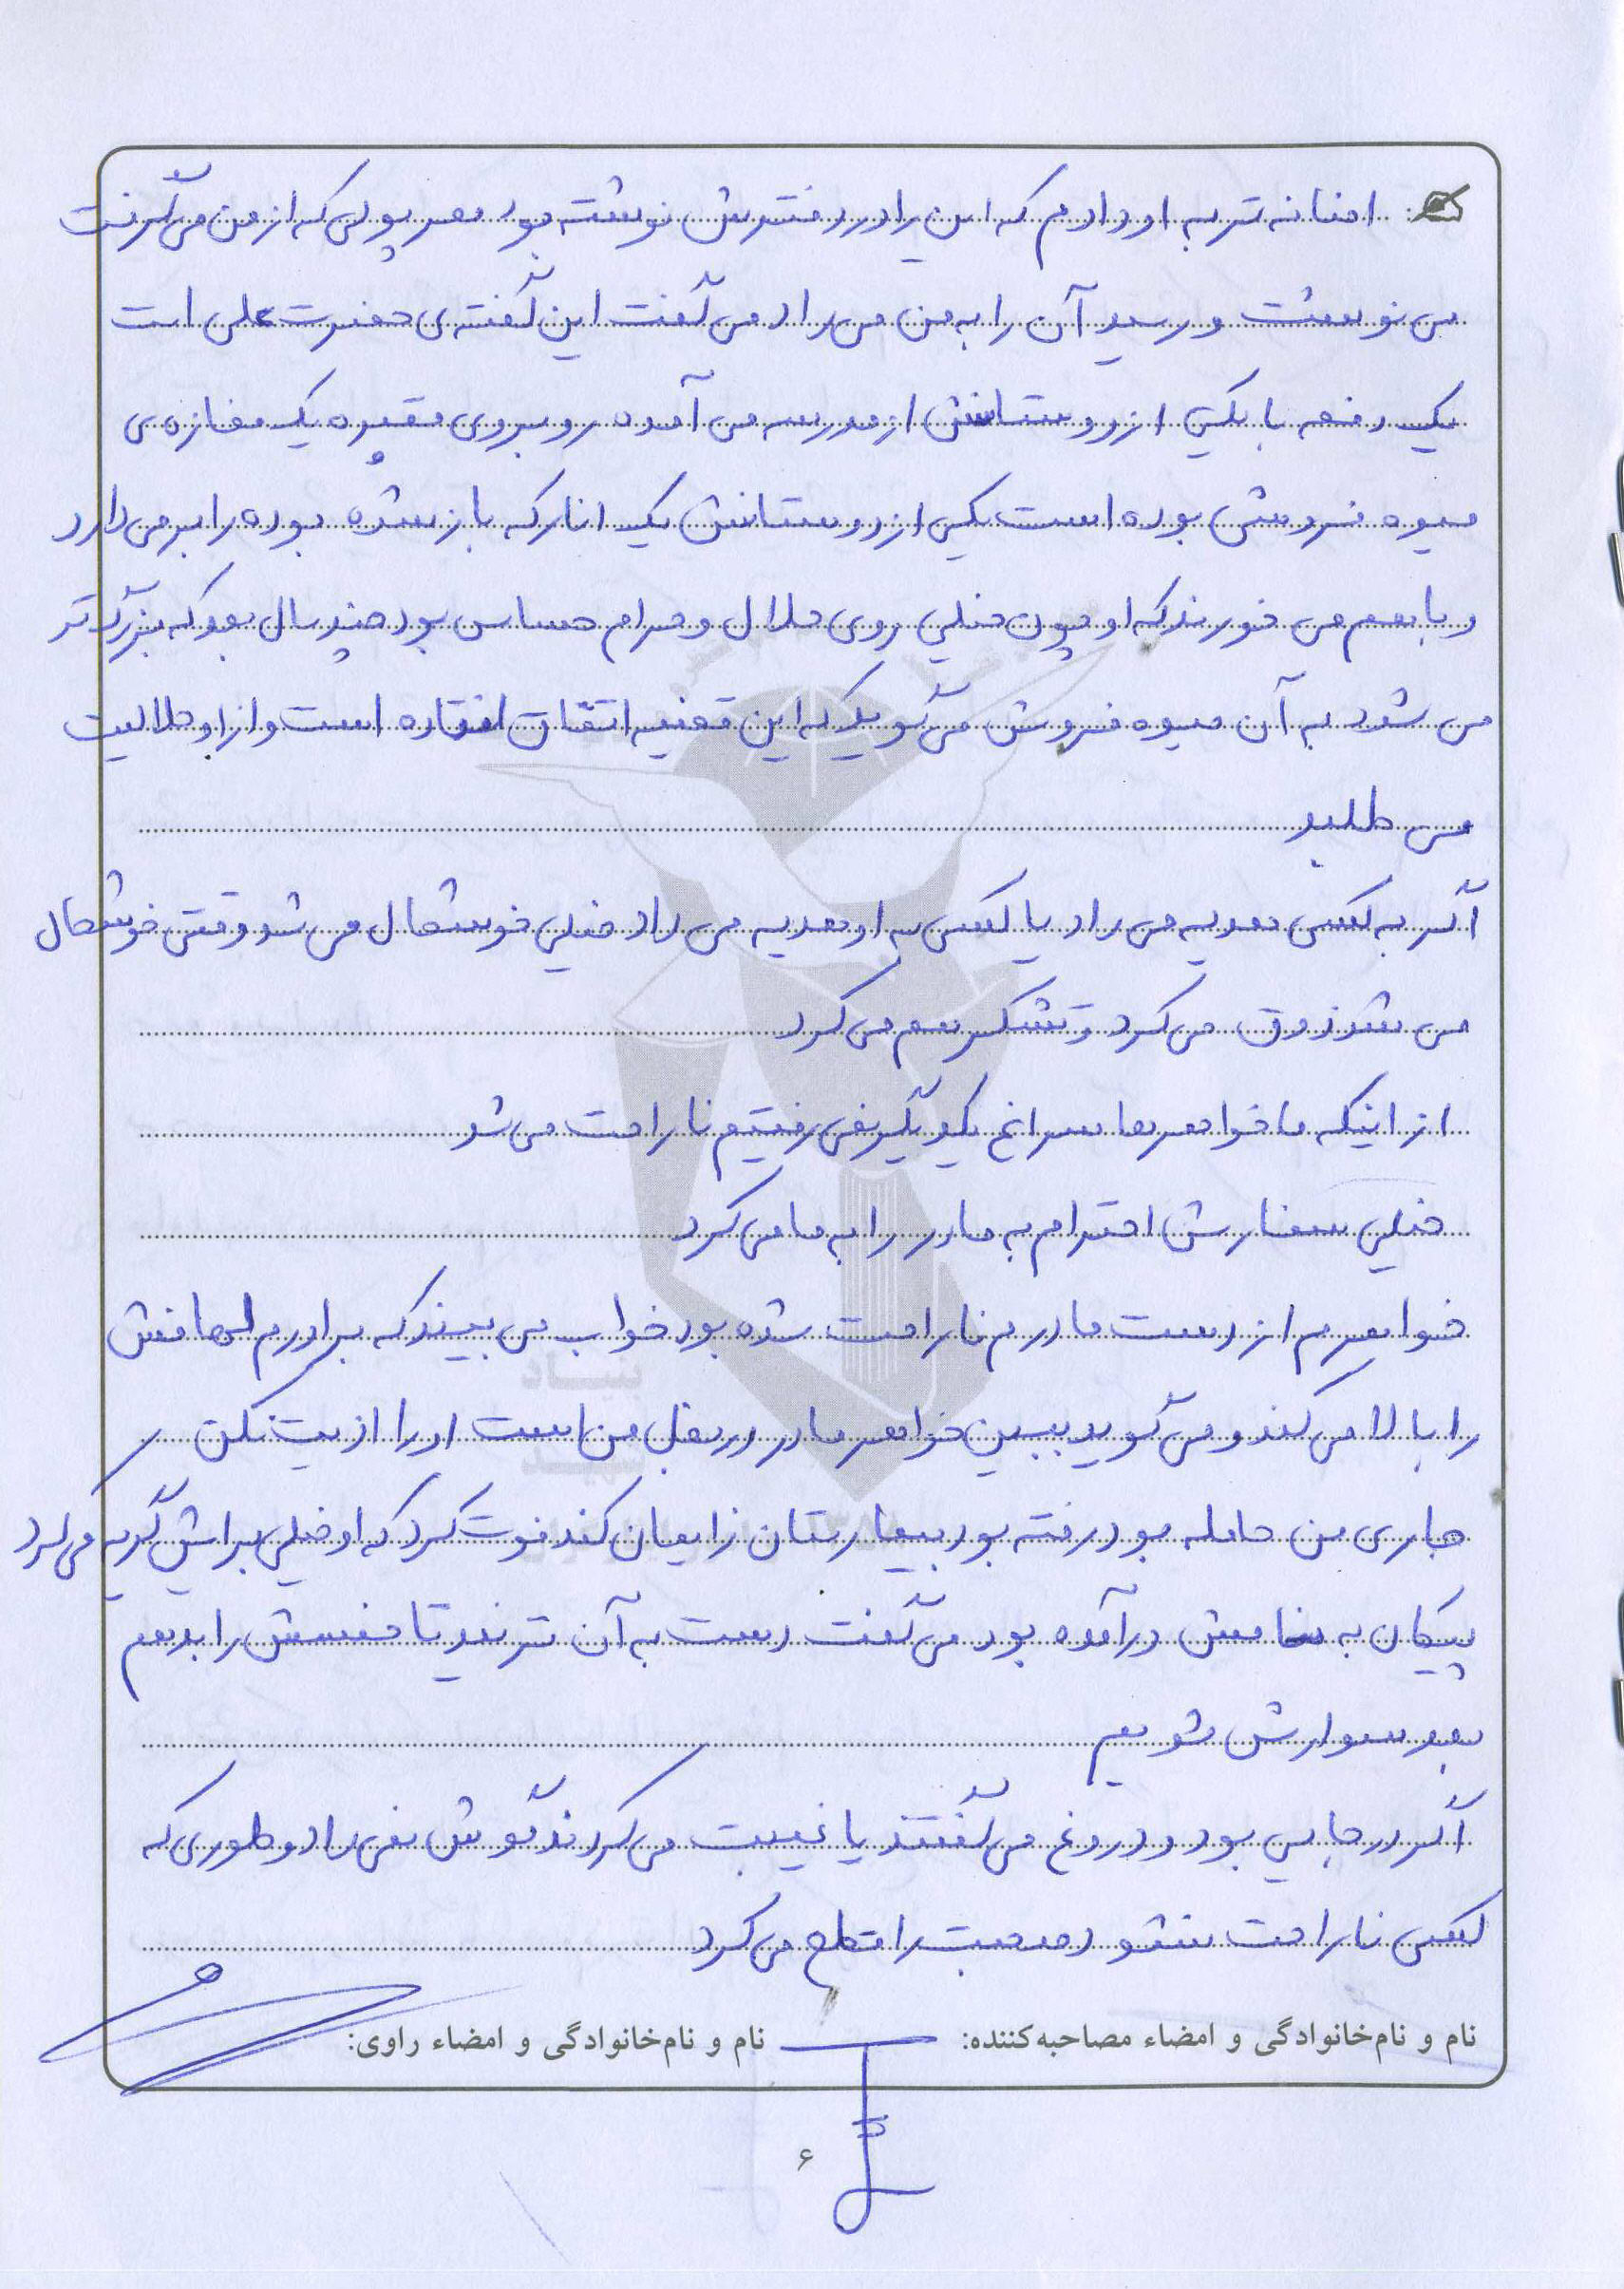 اضافه‌تر به او دادم که این را در دفترش نوشته بود هر پولی که از من می‌گرفت
می نوشت و رسید آن را به من می داد می گفت این گفته ی حضرت علی است
یک دفعه با یکی از دوستانش از مدرسه می آمده روبروی مقبره یک مغازه ی
میوه فروشی بوده است یکی از دوستانش یک انار که باز شده بوده را برمی دارد
و با هم می خورند که او چون خیلی روی حلال و حرام حساس بود چند سال بعد که بزرگ تر
می شود به آن میوه فروش می گوید که این قضیه اتفاق افتاده است و از او حلالیت
می طلبد
اگر به کسی هدیه می داد یا کسی به او هدیه می داد خیلی خوشحال می شد وقتی خوشحال
می شد ذوق می کرد و تشکر هم می کرد
از اینکه ما خواهرها سراغ یکدیگر نمی رفتیم ناراحت می شد
خیلی سفارش احترام به مادر را به ما می کرد
خواهرم از دست مادرم ناراحت شده بود خواب می بیند که برادرم لحافش
را بالا می کند و می گوید ببین خواهر مادر در بغل من است او را اذیت نکن
جاری من حامله بود رفته بود بیمارستان زایمان کند فوت کرد که او خیلی برایش گریه می کرد
پیکان به نامش درآمده بود می گفت دست به آن نزنید تا خمسش را بدهم
بعد سوارش شویم
اگر در جایی بود و دروغ می گفتند یا غیبت می کردند گوش نمی داد و طوری که
کسی ناراحت نشود صحبت را قطع می کرد
نام و نام‌خانوادگی و امضاء مصاحبه‌کننده: نام و نام‌خانوادگی و امضاء راوی:
۶